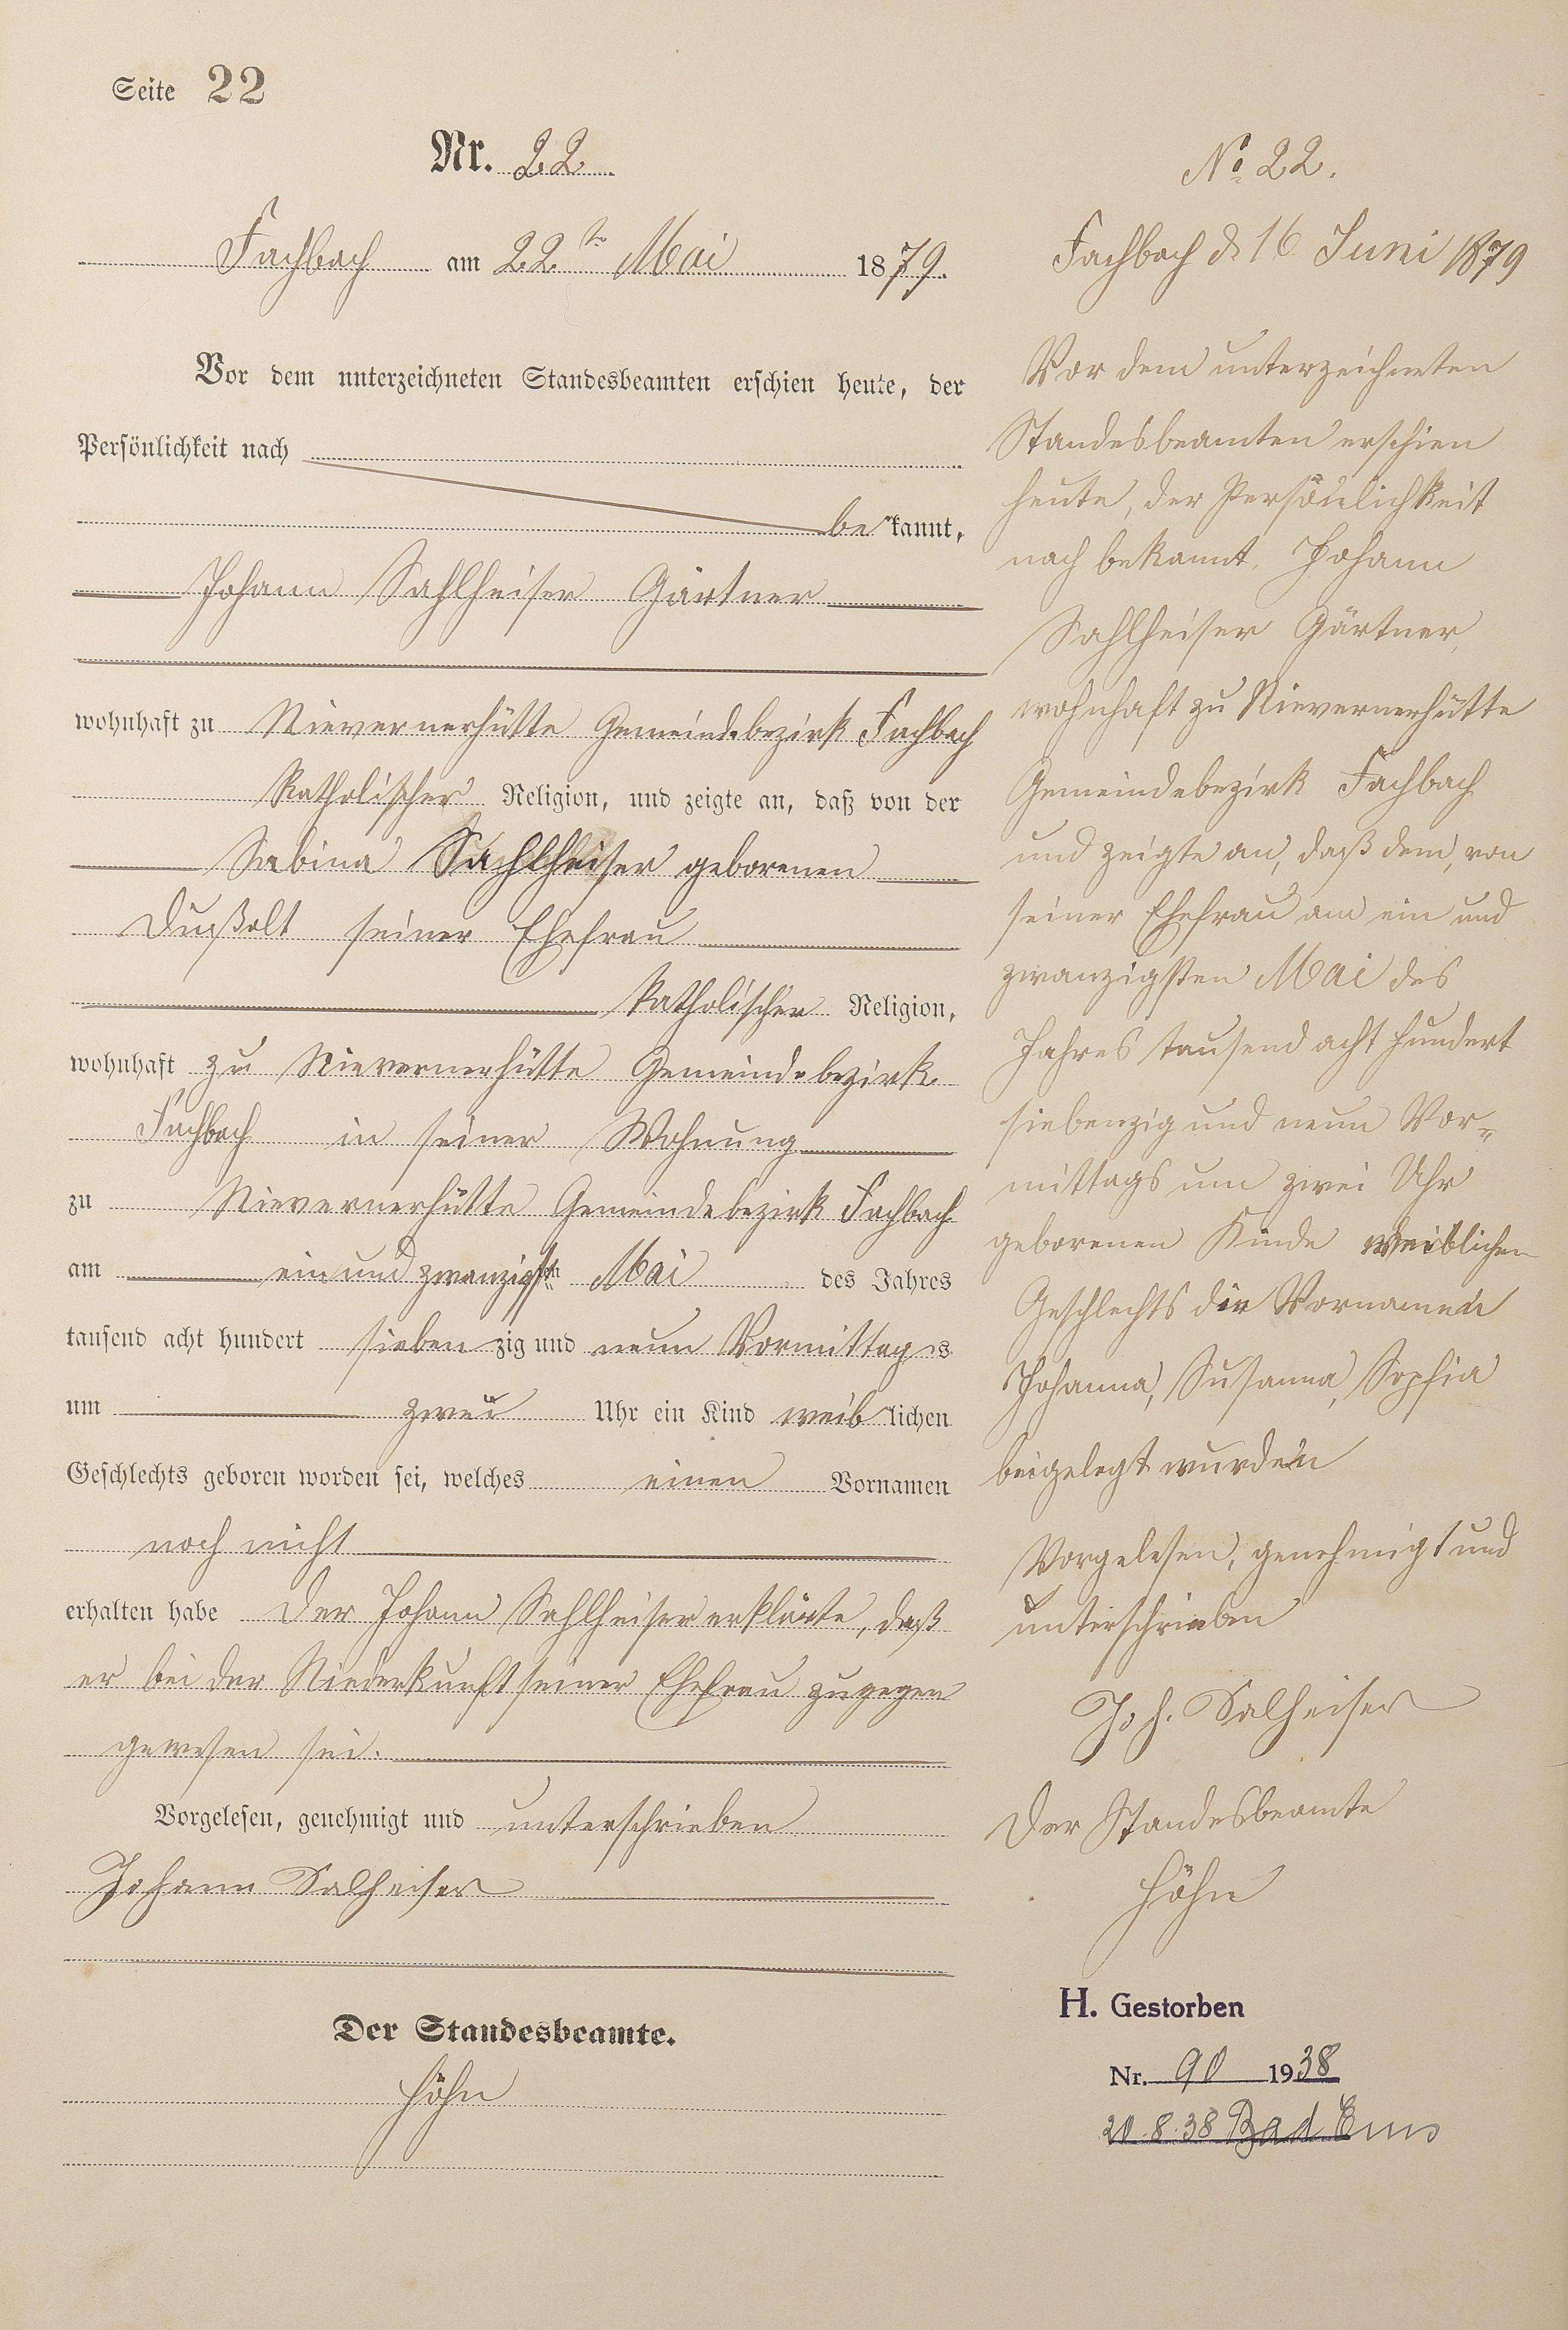 Seite 22
Nr. 22
Fachbach am 22ten Mai 1879.
Vor dem unterzeichneten Standesbeamten erschien heute, der
Persönlichkeit nach
be kannt,
Johann Sahlheiser Gärtner
wohnhaft zu Nievernerhütte Gemeindebezirk Fachbach
Katholischer Religion, und zeigte an, daß von der
Sabina Sahlheiser geborenen
seiner Ehefrau
katholischer Religion,
wohnhaft zu Nievernerhütte Gemeindebezirk
Fachbach in seiner Wohnung
zu Nievernerhütte Gemeindebezirk Fachbach
am ein und zwanzigsten Mai des Jahres
tausend acht hundert sieben zig und neun Vormittags
um zwei Uhr ein Kind weib lichen
Geschlechts geboren worden sei, welches einen Vornamen
noch nicht
erhalten habe Der Johann Sahlheiser erklärte, daß
er bei der Niederkunft seiner Ehefrau zugegen
gewesen sei.
Vorgelesen, genehmigt und unterschrieben
Johann Salheiser
Der Standesbeamte.
Höhn
No 22.
Fachbach d 16 Juni 1879
Vor dem unterzeichneten
Standesbeamten erschien
heute, der Persönlichkeit
nach bekannt, Johann
Sahlheiser Gärtner,
wohnhaft zu Nievernerhütte
Gemeindebezirk Fachbach
und zeigte an, daß dem, von
seiner Ehefrau am ein und
zwanzigsten Mai des
Jahres tausend acht hundert
siebenzig und neun Vor=
mittags um zwei Uhr
geborenen Kinde weiblichen
Geschlechts die Vornamen
Johanna, Susanna, Sophia
beigelegt wurden
Vorgelesen, genehmigt und
unterschrieben
Joh. Salheiser
Der Standesbeamte
Höhn
H. Gestorben
Nr. 90 1938
20.8.38 Bad Ems